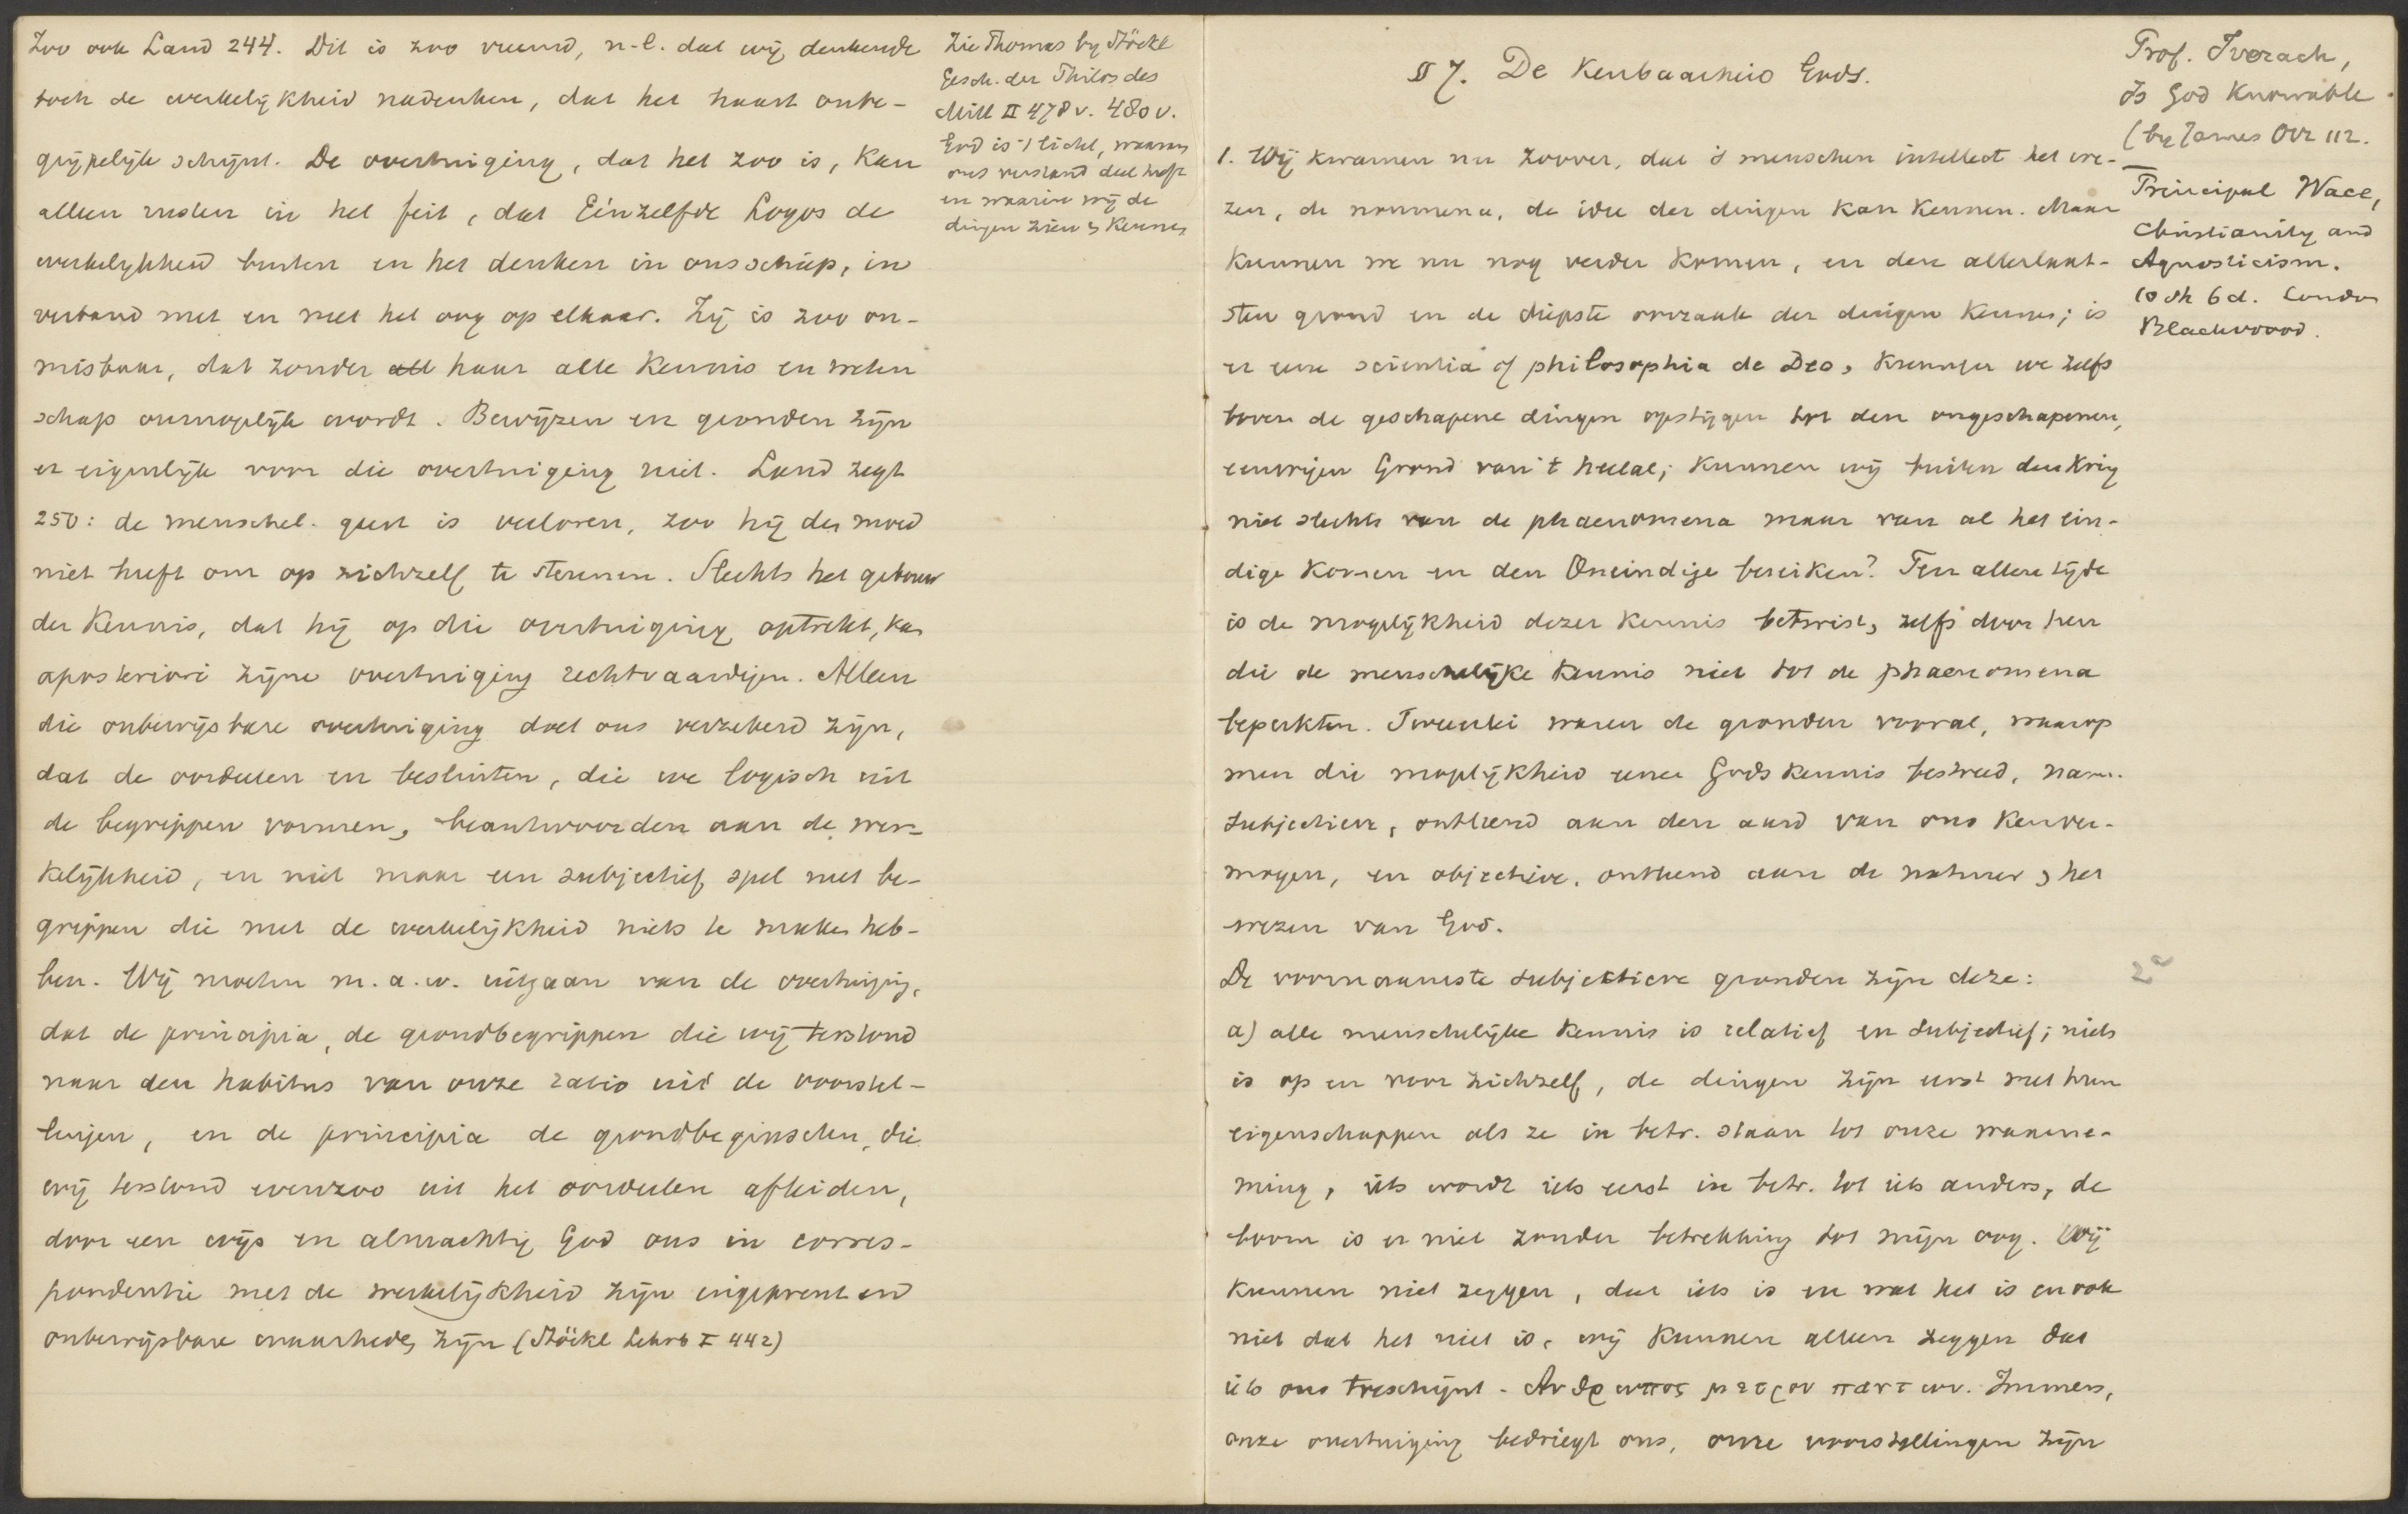 Zoo ook Land 244. Dit is zoo vreemd, n.l. dat wij denkende
toch de werkelijkheid nadenken, dat het haast onbe-
grijpelijk schijnt. De overtuiging, dat het zoo is, kan
alleen rusten in het feit, dat Eénzelfde Logos de
werkelijkheid buiten en het denken in ons schiep, in
verband met en met het oog op elkaar. Zij is zoo on-
misbaar, dat zonder all haar alle kennis en weten
schap onmogelijk wordt. Bewijzen en gronden zijn
er eigenlijk voor die overtuiging niet. Land zegt
250: de menschel. geest is verloren, zoo hij den moed
niet heeft om op zichzelf te steunen. Slechts het gebouw
der kennis, dat hij op die overtuiging optrekt, kan
aposteriori zijne overtuiging rechtvaardigen. Alleen
die onbewijsbare overtuiging doet ons verzekerd zijn,
dat de oordeelen en besluiten, die we logisch uit
de begrippen vormen, beantwoorden aan de wer-
kelijkheid, en niet maar een subjectief spel met be-
grippen die met de werkelijkheid niets te maken heb-
ben. Wij moeten m.a.w. uitgaan van de overtuiging,
dat de principia, de grondbegrippen die wij terstond
naar den habitus van onze ratio uit de voorstel-
lingen, en de principia de grondbeginselen, die
wij terstond evenzoo uit het oordeelen afleiden,
door een wijs en almachtig God ons in corres-
pondentie met de werkelijkheid zijn ingeprent en
onbewijsbare waarheden zijn (Stöckl Lehrb I 442)
Zie Thomas by Stöckl
Gesch. der Philos des
Mitt II 478 v. 480 v.
God is 't licht, waaraan
ons verstand deel heeft
en waarin wij de
dingen zien & kennen
§ 7. De Kenbaarheid Gods.
1. Wij kwamen nu zoover, dat 's menschen intellect het we-
zen, de noumena, de idee der dingen kan kennen. Maar
kunnen we nu nog verder komen, en den allerlaat-
sten grond en de diepste oorzaak der dingen kennen; is
er eene scientia of philosophia de Deo, kunnen we zelfs
boven de geschapene dingen opstijgen tot den ongeschapenen,
eeuwigen Grond van 't heelal; kunnen wij buiten den kring
niet slechts van de phaenomena maar van al het ein-
dige komen en den Oneindige bereiken? Ten allen tijde
is de mogelijkheid dezer kennis betwist, zelfs door hen
die de menschelijke kennis niet tot de phaenomena
beperkten. Tweeerlei waren de gronden vooral, waarop
men die mogelijkheid eener Gods kennis bestreed, nam.
subjectieve, ontleend aan den aard van ons kenver-
mogen, en objectieve, ontleend aan de natuur & het
wezen van God.
De voornaamste subjektieve gronden zijn deze:
a) alle menschelijke kennis is relatief en subjectief; niets
is op en voor zichzelf, de dingen zijn eerst met hun
eigenschappen als ze in betr. staan tot onze waarne-
ming, iets wordt iets eerst in betr. tot iets anders, de
boom is er niet zonder betrekking tot mijn oog. Wij
kunnen niet zeggen, dat iets is en wat het is en ook
niet dat het niet is, wij kunnen alleen zeggen dat
iets ons toeschijnt - Ανθρωπος μετρον παντων. Immers,
onze overtuiging bedriegt ons, onze voorstellingen zijn
Prof. Iverach,
Is God Knowable
(by James Orr 112.
Principal Wace,
Christianity and
Agnosticism.
10 sh 6 d. London
Blackwood.
2a